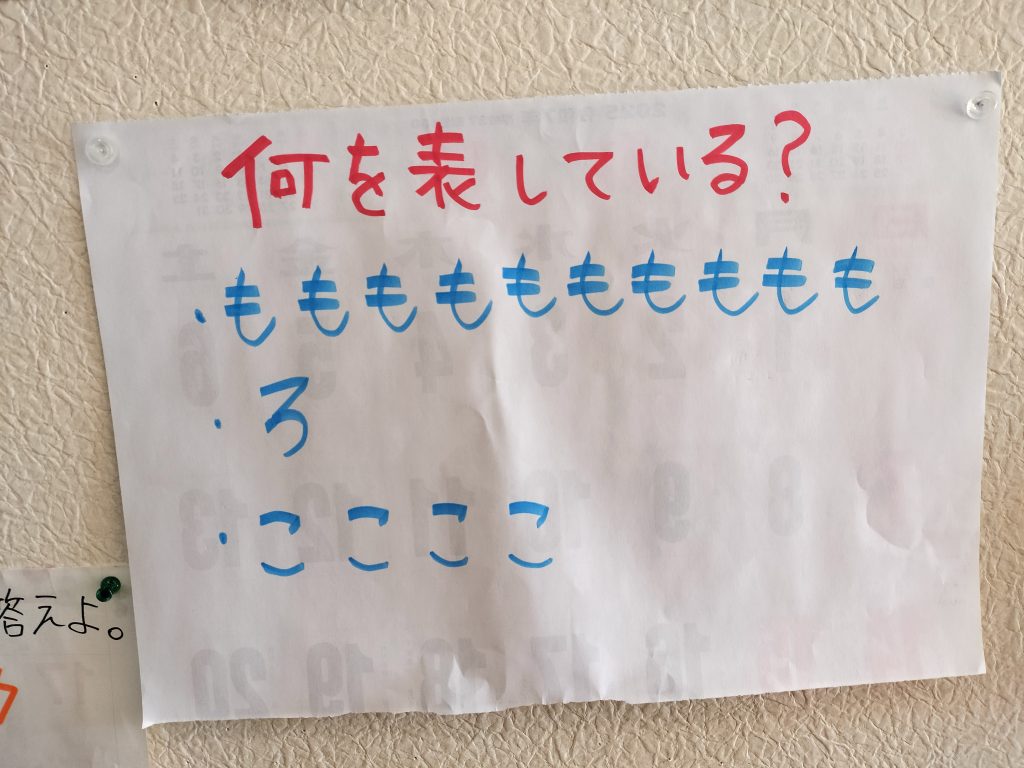 何を表している?
・もももももももももも
・ろ
・ここここ
答えよ。